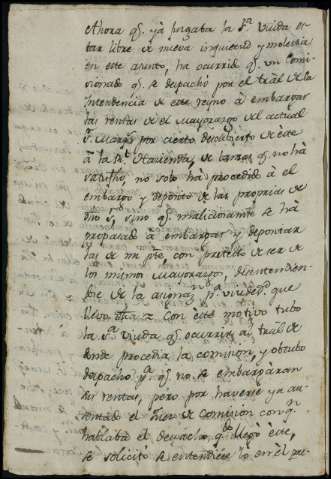 Ahora qe. ya juzgaba la Sra. Viuda es
tar libre de nueva inquietud y molestia
en este asunto, ha ocurrido qe. un Comi
sionado qe. se despachó por el tral. de la
Intendencia de este reyno á embargar
las rentas de el Mayorazgo del actual
Sr. Marqs. por cierto descubierto de éste
á la Rl. Hazienda, de lanzas qe. no há
satisfho, no solo há procedido á el
embargo y deposito de las proprias de
dho Sr. sino qe. se há
propasado á embargar y depositar
las de mi pte. con pretexto de ser de
los mismos Mayorazgos, desentendien
dose de la pr. viudedad que
Con este motivo tubo
la Sra. Viuda qe. ocurrir al tral. de
donde procedia la comision, y obtubo
despacho pa. qe. no se embargaran
sus rentas, pero por haverse ya au
sentado el de Comision con qn.
hablaba el despacho qdo. llegó éste,
se solicitó se entendiese lo en él pre